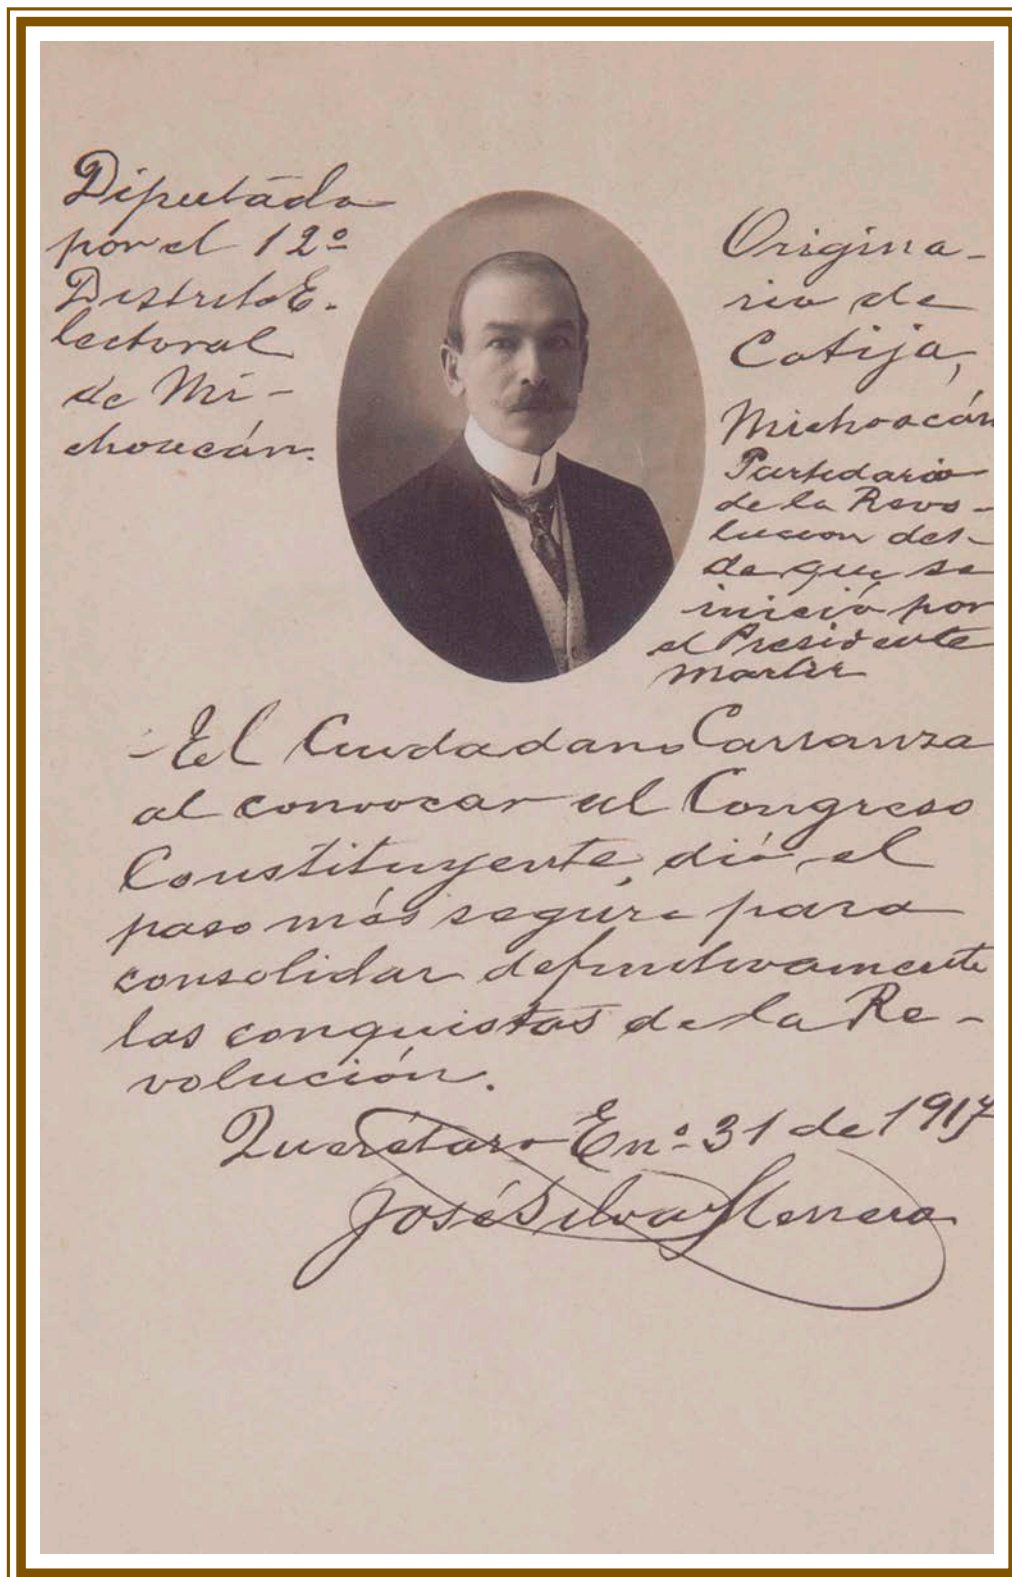 Diputado
por el 12º
Distrito E-
lectoral
de Mi-
choacán.
Origina-
rio de
Cotija,
Michoacán
Partidario
de la Revo-
lucion des-
de que se
inició por
el Presidente
Martir
-El Ciudadano Carranza
al convocar al Congreso
Constituyente, dió el
paso más seguro para
consolidar definitivamente
las conquistas de la Re-
volución.
Querétaro Enº 31 de 1917
José Silva Herrera